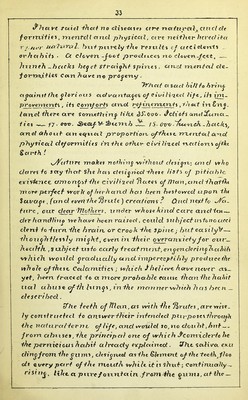 33
I have said that no diseases are natural, and de
formities, mental and physical, are neither heredita
ry nor natural. but purely the results of accidents
or habits. A cloven-foot produces no cloven feet, —
hunch-backs beget straight spines, and mental de-
formities can have no progeny.
What a sad bill to bring
against the glorious advantages of civilized life, its im
provements, its comforts and refinements, that in Eng
land there are something like 35.000. Idiots and Luna-
tics — 17.000. Deaf & Dumb — 15.000. Hunch-backs,
and about an equal proportion of these mental and
physical deformities in the other civilized nations of the
Earth!
Nature makes nothing without design; and who
dares to say that She has designed these lists of pitiable
existence amongst the civilized Races of Man, and that the
more perfect work of her hand has been bestowed upon the
Savage, (and even the Brute) creations? And next to Na-
ture, our dear Mothers, under whose kind care and ten-
der handling we have been raised, could subject us to no acci
dent to turn the brain or crook the spine; but easily &
thoughtlessly might, even in their overanxiety for our
health, subject us to early treatment, engendering habits
which would gradually and imperceptibly produce the
whole of these Calamities; which I believe have never as
yet, been traced to a more probable cause than the habit
ual abuse of th lungs, in the manner which has been
described.
The teeth of Man, as with the Brutes, are wise.
ly constructed to answer their intended purposes through
the natural term of life, and would so, no doubt, but
from abuses, the principal one of which I consider to be
the pernicious habit already explained. The saliva exu
ding from the gums, designed as the Element of the teeth, floo
ds every part of the mouth while it is shut; continually
rising, like a pure fountain from the gums, at the